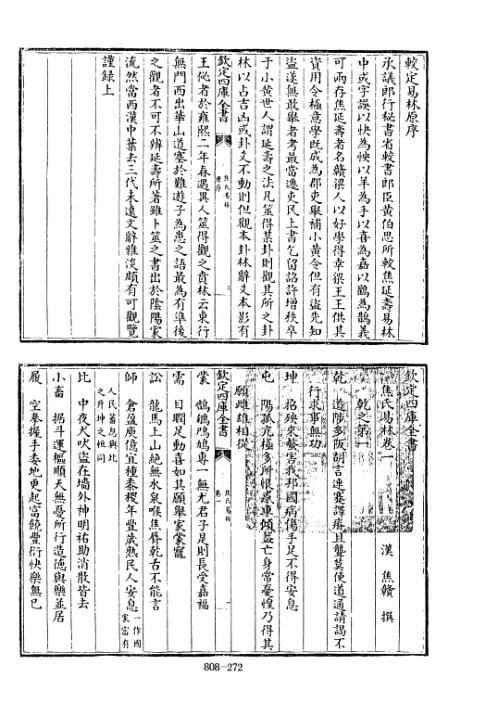 較定易林原序
承議郎行秘書省較書郎臣黄伯思所較焦延壽易林
中或字誤以快為怏以羊為手以喜為嘉以鸛為鵲義
可兩存焦延壽者名贛梁人以好學得幸梁王王供其
資用令極意學既成為郡吏舉補小黄令但有盜先知
盜遂無敢舉者考最當遷吏民上書乞留詔許增秩卒
于小黄世人謂延壽之法凡筮得某卦則觀其所之卦
林以占吉凶或卦爻不動則但觀本卦林辭又本影有
欽定四庫全書
焦氏易林
原序
王佖者於雍熙二年春遇異人筮得觀之賁林云東行
無門西出華山道塞於難遊子為患之語最為有準後
之觀者不可不辨延壽所著雖卜筮之書出於陰陽家
流然當西漢中葉去三代未遠文辭雅淡頗有可觀覽
謹録上
欽定四庫全書
焦氏易林卷一
漢 焦贛 撰
乾之第一
乾 道陟多阪胡言連謇譯瘖且聾莫使道通請謁不
行求事無功
坤 招殃來螫害我邦國病傷手足不得安息
屯 陽孤亢極多所恨惑車傾蓋亡身常憂惶乃得其
願雌雄相從
欽定四庫全書
焦氏易林
卷一
蒙 鵠鵴鳲鳩專一無尤君子是則長受嘉福
需 目瞤足動喜如其願舉家蒙寵
訟 龍馬上山絶無水泉喉焦脣乾舌不能言
師 倉盈庾億宜種黍稷年豐歲熟民人安息一作國家富有
人民蕃息與比之升坤之恒同
比 中夜犬吠盜在墻外神明祐助消散皆去
小畜 據斗運樞順天無憂所行造德與樂並居
履 空拳握手委地更起富饒豐衍快樂無已
808-272